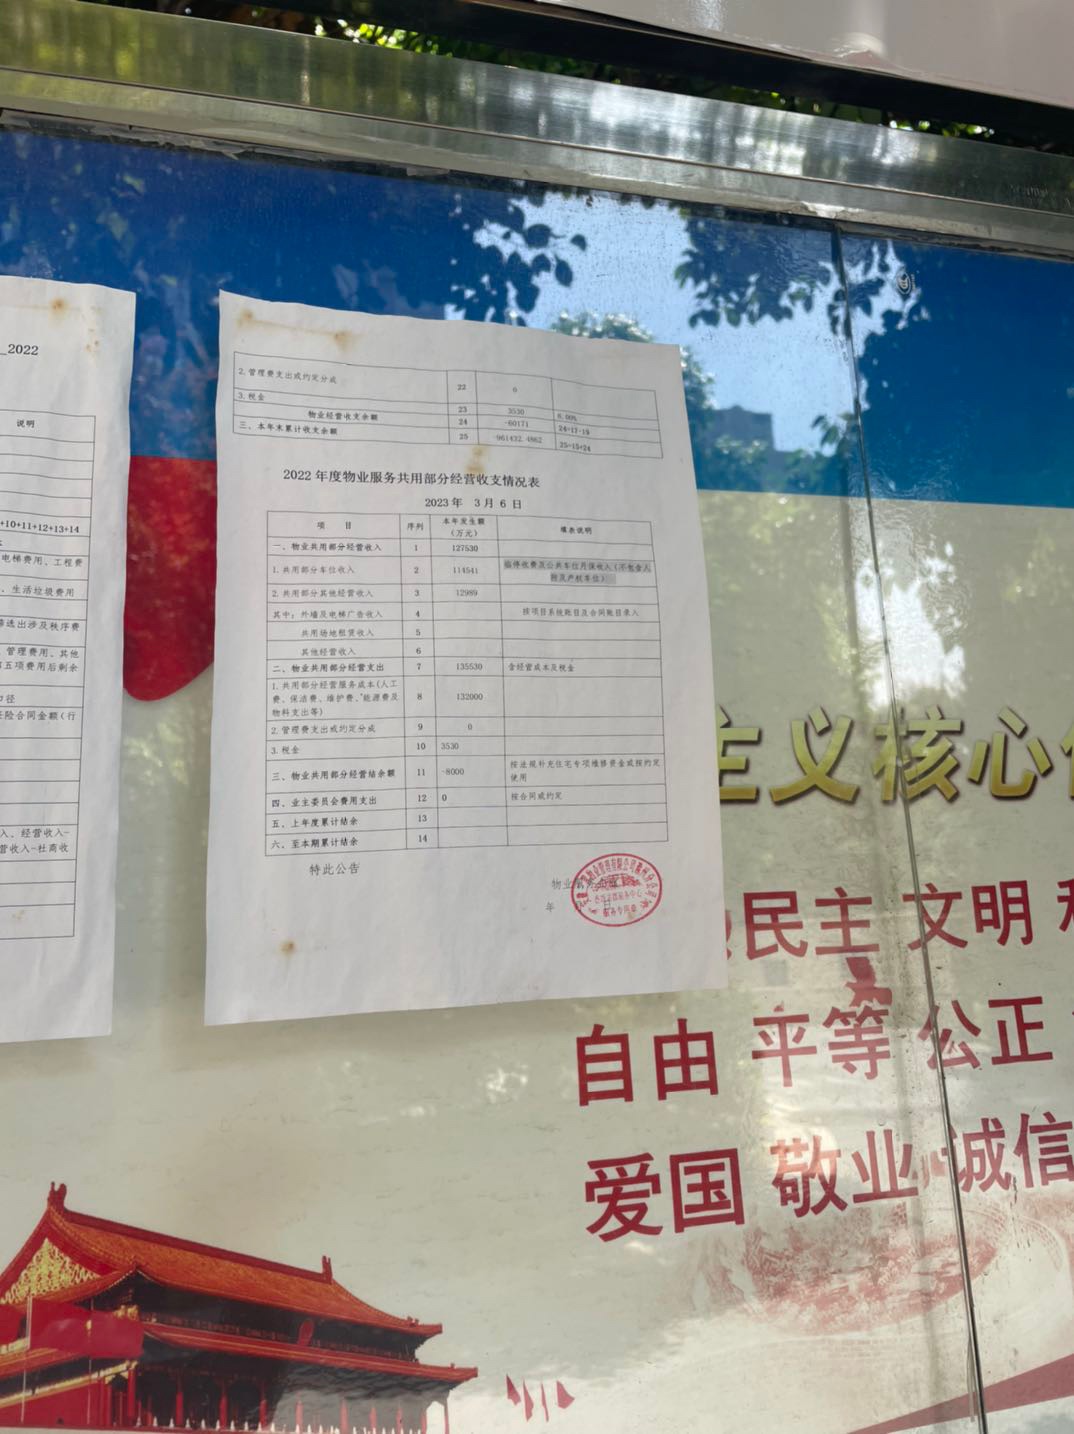 _2022
说明
+10+11+12+13+14
电梯费用、工程费
、生活垃圾费用
筛选出涉及秩序费
、管理费用、其他
五项费用后剩余
口径
险合同金额(行
入、经营收入-
营收入-社商收
2.管理费支出或约定分成 22 0
3.税金 23 3530 6.00%
物业经营收支余额 24 -60171 24-17-19
三、本年末累计收支余额 25 -961432.4862 25-15+24
2022 年度物业服务共用部分经营收支情况表
2023 年 3 月 6 日
项 目 序列 本年发生额(万元) 填表说明
一、物业共用部分经营收入 1 127530
1.共用部分车位收入 2 114541 临停收费及公共车位月保收入(不包含人防及产权车位)
2.共用部分其他经营收入 3 12989
其中:外墙及电梯广告收入 4 按项目系统账目及合同账目录入
共用场地租赁收入 5
其他经营收入 6
二、物业共用部分经营支出 7 135530 含经营成本及税金
1.共用部分经营服务成本(人工
费、保洁费、维护费、能源费及 8 132000
物料支出等)
2.管理费支出或约定分成 9 0
3.税金 10 3530
三、物业共用部分经营结余额 11 -8000 按法规补充住宅专项维修资金或按约定使用
四、业主委员会费用支出 12 0 按合同或约定
五、上年度累计结余 13
六、至本期累计结余 14
特此公告
物业服务
年 月 日
主义核心
民主 文明
自由 平等 公正
爱国 敬业 诚信